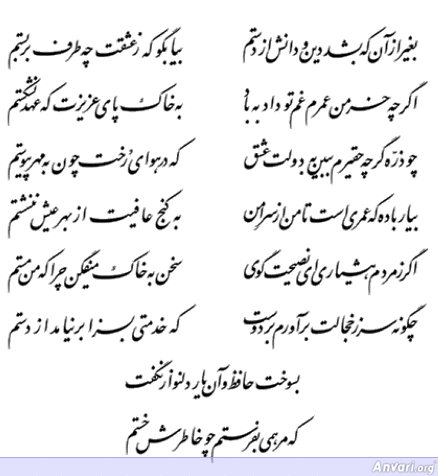 بغیر از آن که بشد دین و دانش از دستم بیا بگو که ز عشقت چه طرف بربستم
اگر چه خرمن عمرم غم تو داد به باد به خاک پای عزیزت که عهد نشکستم
چو ذرّه گرچه حقیرم ببین به دولت عشق که در هوای رُخت چون به مهر پیوستم
بیار باده که عمری است تا من از سر امن به کنج عافیت از بهر عیش ننشستم
اگر ز مردم هشیاری ای نصیحت گوی سخن به خاک میفکن چرا که من مستم
چگونه سر ز خجالت برآورم بر دوست که خدمتی بسزا برنیامد از دستم
بسوخت حافظ و آن یار دلنواز نگفت
که مرهمی بفرستم چو خاطرش خستم
Anvari.org